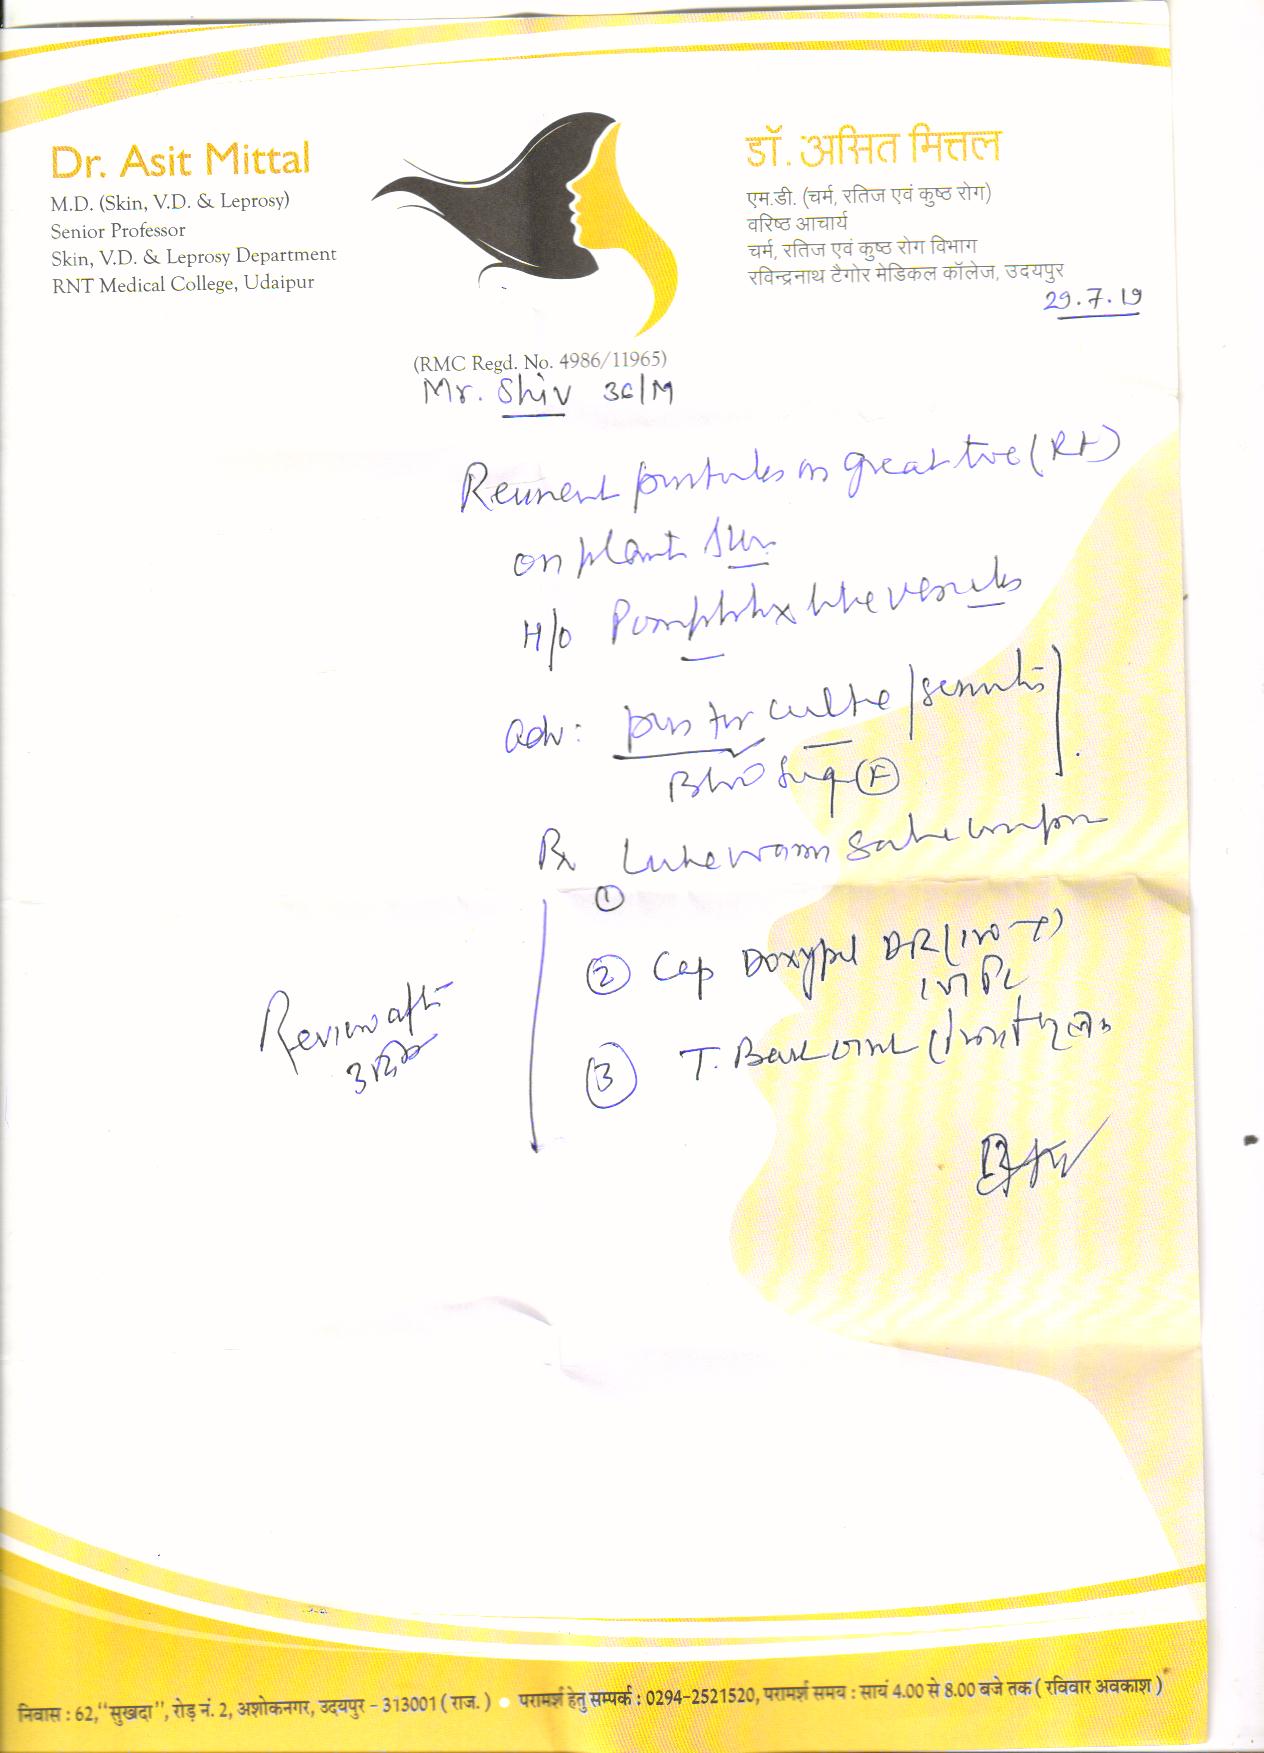 Dr. Asit Mittal
M.D. (Skin, V.D. & Leprosy)
Senior Professor
Skin, V.D. & Leprosy Department
RNT Medical College, Udaipur
डॉ. असित मित्तल
एम.डी. (चर्म, रतिज एवं कुष्ठ रोग)
वरिष्ठ आचार्य
चर्म, रतिज एवं कुष्ठ रोग विभाग
रविन्द्रनाथ टैगोर मेडिकल कॉलेज, उदयपुर
29.7.19
(RMC Regd. No. 4986/11965)
Mr. Shiv 36/M
Recurrent pustules on great toe (Rt)
on plant
H/o Pompholyx like vesicles
Adv: pus for culture/
(F)
Rx Lukewarm
①
② Cap DR (
③ T.
Review after
3
निवास : 62, "सुखदा", रोड़ नं. 2, अशोकनगर, उदयपुर - 313001 ( राज. ) • परामर्श हेतु सम्पर्क : 0294-2521520, परामर्श समय : सायं 4.00 से 8.00 बजे तक ( रविवार अवकाश )